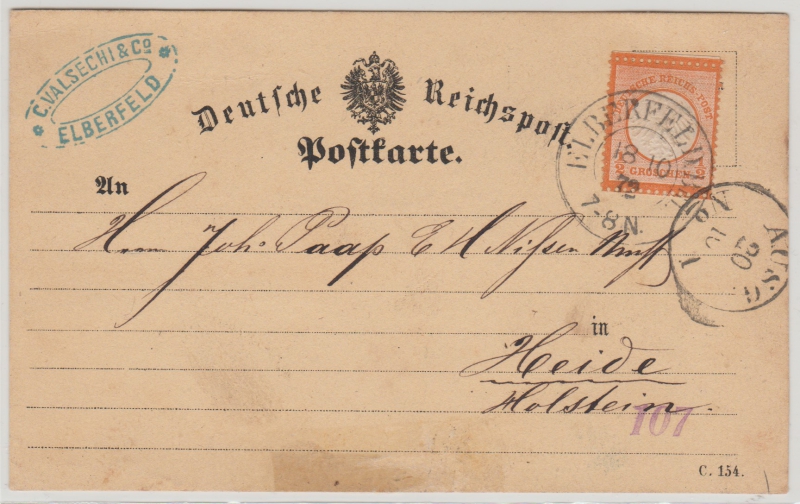 C. VALSECHI & Co
ELBERFELD
Deutsche Reichspost.
Postkarte.
DEUTSCHE REICHS-POST
1/2 GROSCHEN 1/2
ELBERFELD
18 10
72
7-8 N.
AUSG
No 1
An
Herrn Johs Paap E H Nissen
in
Heide
Holstein.
107
C. 154.